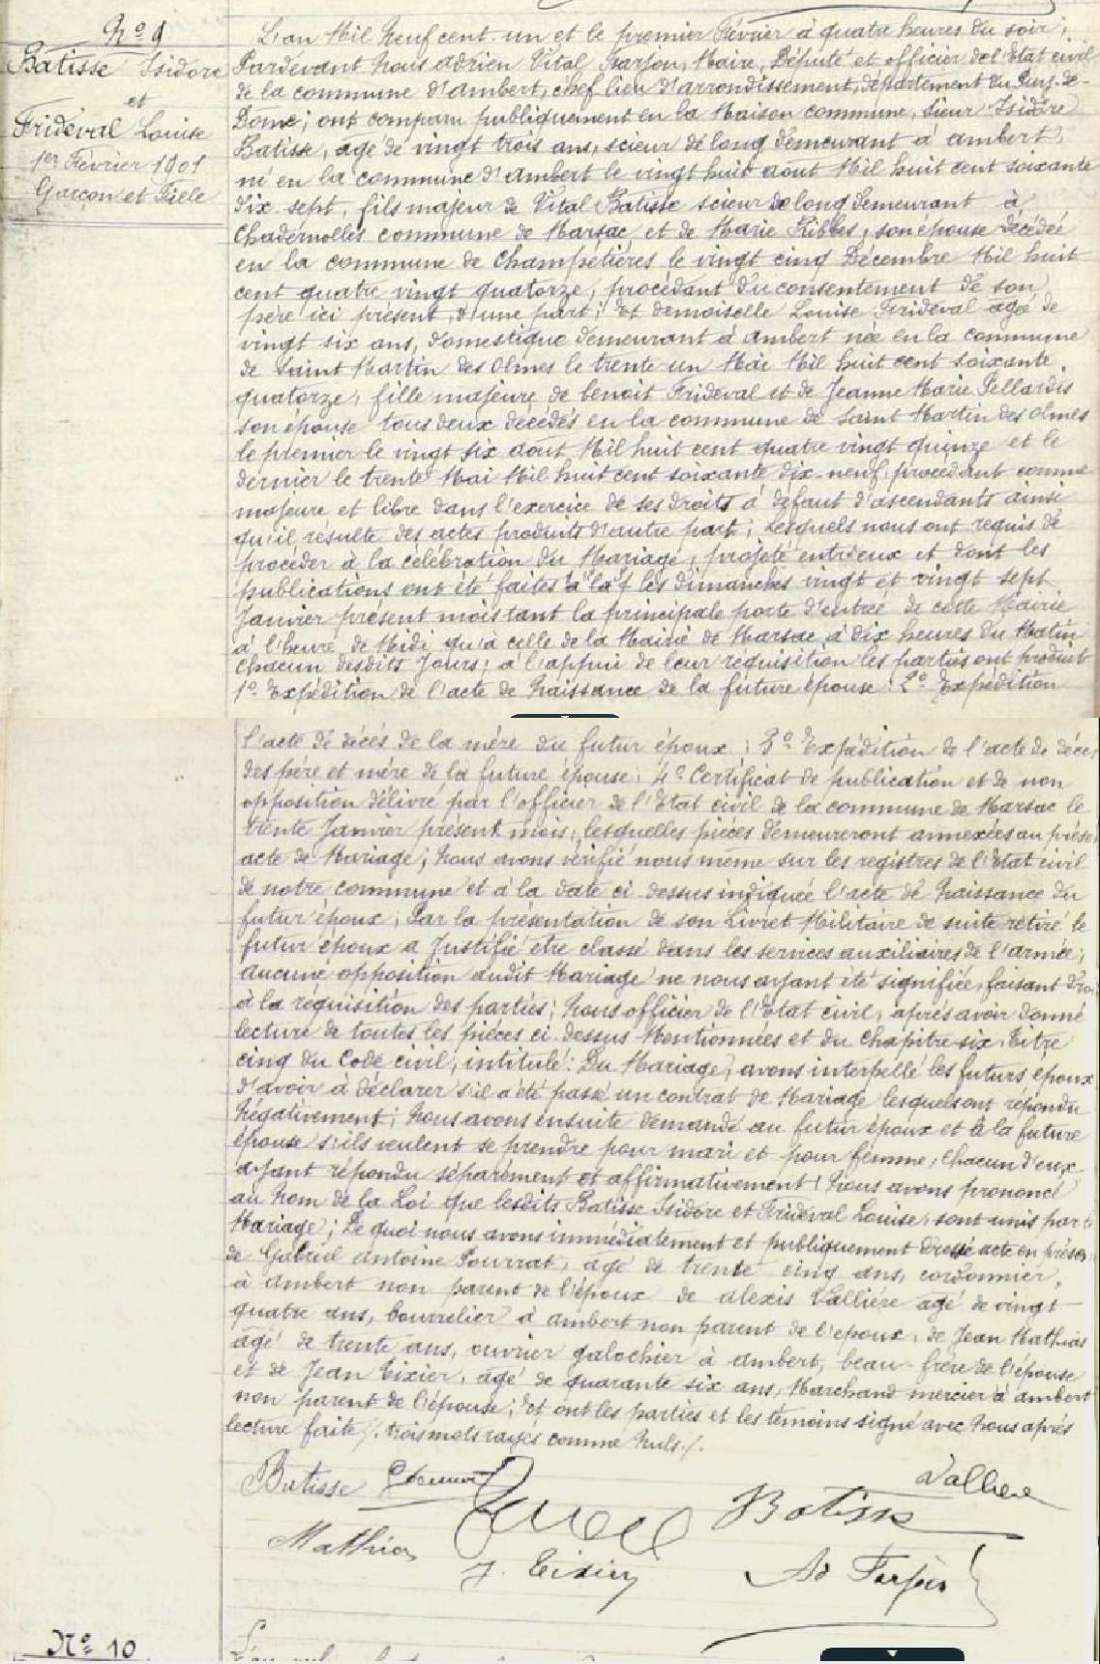 N° 9
Batisse Isidore
et
Frideval Louise
1er Février 1901
Garçon et Fille
L'an Mil Neuf cent un et le premier Février à quatre heures du soir,
Pardevant Nous Adrien Vital Farjon, Maire, Député et officier de l'Etat civil
de la commune d'Ambert, chef lieu d'arrondissement, département du Puy-de-
Dome; ont comparu publiquement en la Maison commune, Sieur Isidore
Batisse, âgé de vingt trois ans, scieur de long demeurant à Ambert,
né en la commune d'Ambert le vingt huit août Mil huit cent soixante
dix-sept, fils majeur de Vital Batisse scieur de long demeurant à
Chadernolles commune de Marsac et de Marie Ribbes, son épouse décédée
en la commune de Champétières le vingt cinq Décembre Mil huit
cent quatre vingt quatorze, procédant du consentement de son
père ici présent, d'une part; Et demoiselle Louise Frideval agée de
vingt six ans, domestique demeurant à Ambert née en la commune
de Saint Martin des Olmes le trente un Mai Mil huit cent soixante
quatorze, fille majeure de benoit Frideval et de Jeanne Marie Pellardis
son épouse tous deux décédés en la commune de Saint Martin des Olmes
le premier le vingt six août Mil huit cent quatre vingt quinze et le
dernier le trente Mai Mil huit cent soixante dix-neuf, procédant comme
majeure et libre dans l'exercice de ses droits à défaut d'ascendants ainsi
qu'il résulte des actes produits d'autre part; Lesquels nous ont requis de
procéder à la célébration du Mariage, projeté entr'eux et dont les
publications ont été faites à la f les dimanches vingt et vingt sept
Janvier présent mois tant la principale porte d'entrée de cette Mairie
à l'heure de Midi qu'à celle de la Mairie de Marsac à dix heures du Matin
chacun desdits Jours; à l'appui de leur réquisition les parties ont produit
1° Expédition de l'acte de Naissance de la future épouse: 2° Expédition
l'acte de décès de la mère du futur époux; 3° Expédition de l'acte de décès
des père et mère de la future épouse; 4° Certificat de publication et de non
opposition délivré par l'officier de l'Etat civil de la commune de Marsac le
trente Janvier présent mois; lesquelles pièces demeureront annexées au présent
acte de Mariage; Nous avons vérifié nous même sur les registres de l'Etat civil
de notre commune et à la date ci-dessus indiquée l'acte de Naissance du
futur époux; Par la présentation de son Livret Militaire de suite retiré le
futur époux a Justifié etre classé dans les services auxiliaires de l'armée;
aucune opposition audit Mariage ne nous ayant été signifiée, faisant droit
à la réquisition des parties; Nous officier de l'Etat civil, après avoir donné
lecture de toutes les pièces ci-dessus Mentionnées et du chapitre six, Titre
cinq du Code civil, intitulé: Du Mariage, avons interpellé les futurs époux
d'avoir à déclarer s'il a été passé un contrat de Mariage lesquels ont répondu
Négativement; Nous avons ensuite demandé au futur époux et à la future
épouse s'ils veulent se prendre pour mari et pour femme, chacun d'eux
ayant répondu séparément et affirmativement; Nous avons prononcé
au Nom de la Loi que lesdits Batisse Isidore et Frideval Louise, sont unis par le
Mariage; De quoi nous avons immédiatement et publiquement dressé acte en présen
de Gabriel Antoine Pourrat, agé de trente cinq ans, cordonnier,
à Ambert non parent de l'époux de Alexis Vallière agé de vingt
quatre ans, bourrelier à Ambert non parent de l'époux, de Jean Mathias
agé de trente ans, ouvrier galochier à Ambert, beau-frère de l'épouse
et de Jean Tixier, agé de quarante six ans, Marchand mercier à Ambert
non parent de l'épouse; Et ont les parties et les témoins signé avec Nous après
lecture faite ./. trois mots rayés comme Nuls ./.
Batisse
Vallière
Batisse
Mathias
J. Tixier
Ad Farjon
N° 10